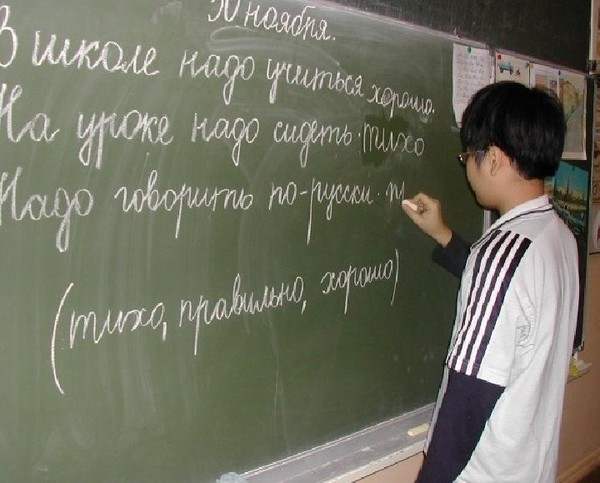 30 ноября.
В школе надо учиться хорошо.
На уроке надо сидеть тихо
Надо говорить по-русски. п
(тихо, правильно, хорошо)